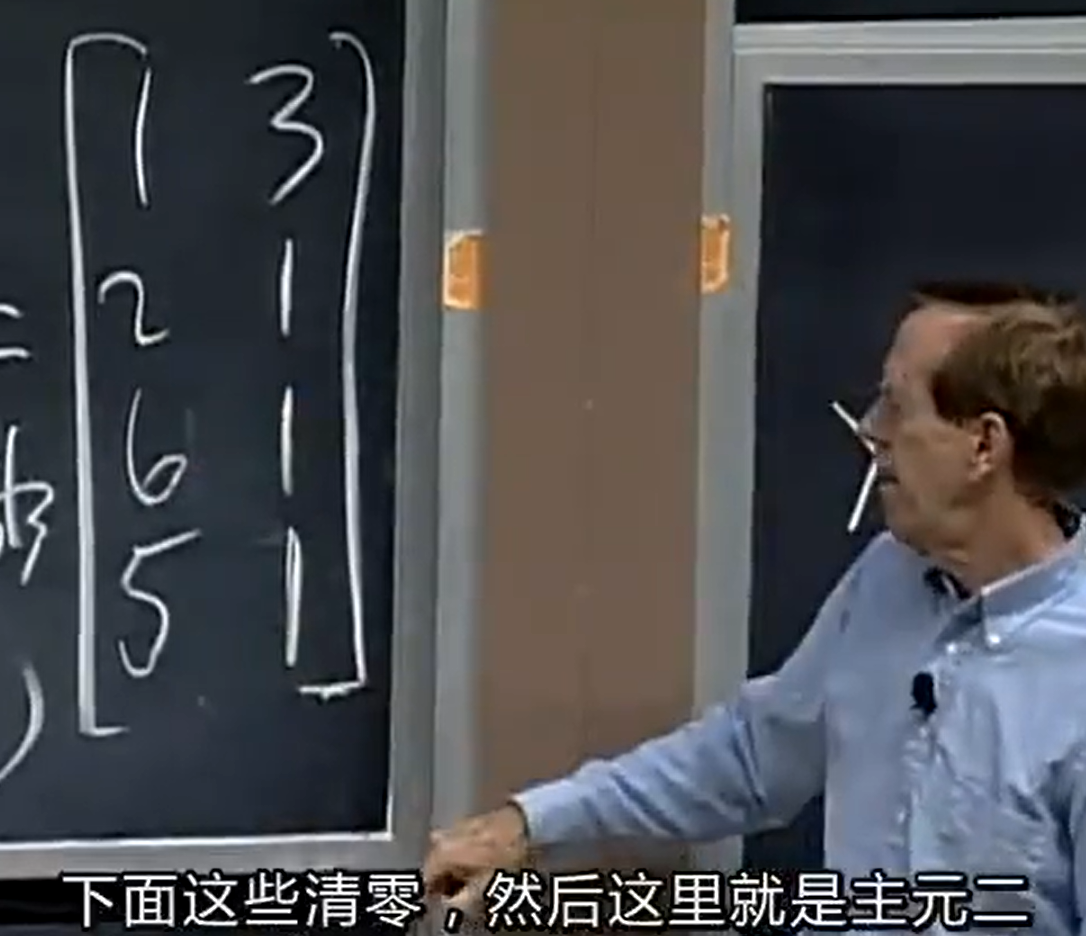 1 3
= 2 1
6 1
5 1
)
下面这些清零,然后这里就是主元二